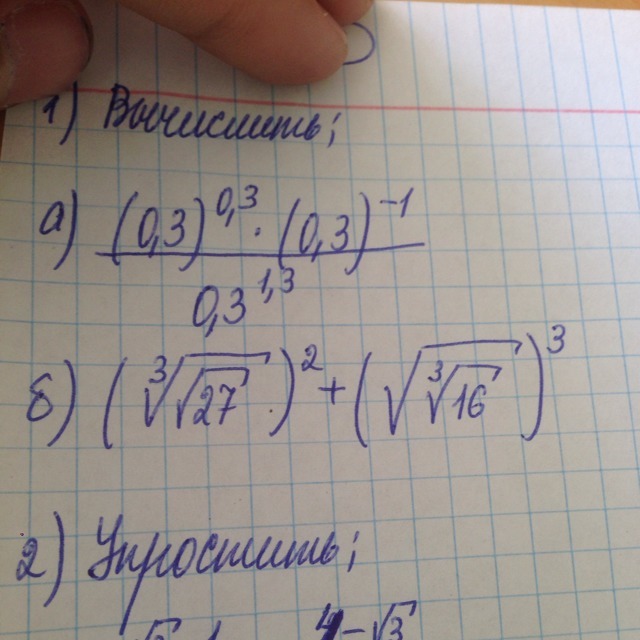 1) Вычислить;
а) ((0,3)^0,3 · (0,3)^-1) / 0,3^1,3
б) (∛√27)^2 + (√∛16)^3
2) Упростить;
4-√3